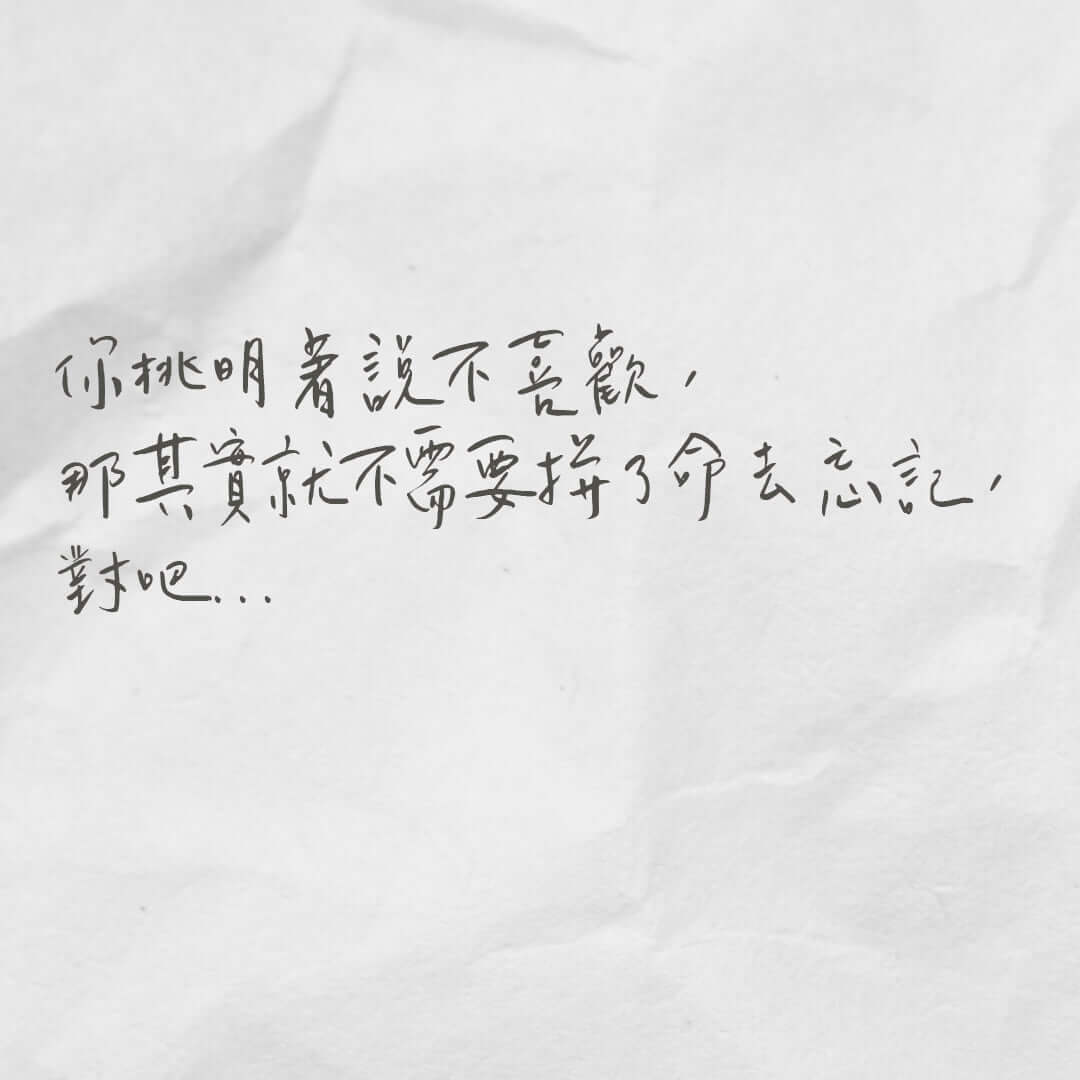 你桃明著說不喜歡，
那其實就不需要拼了命去忘記，
對吧...